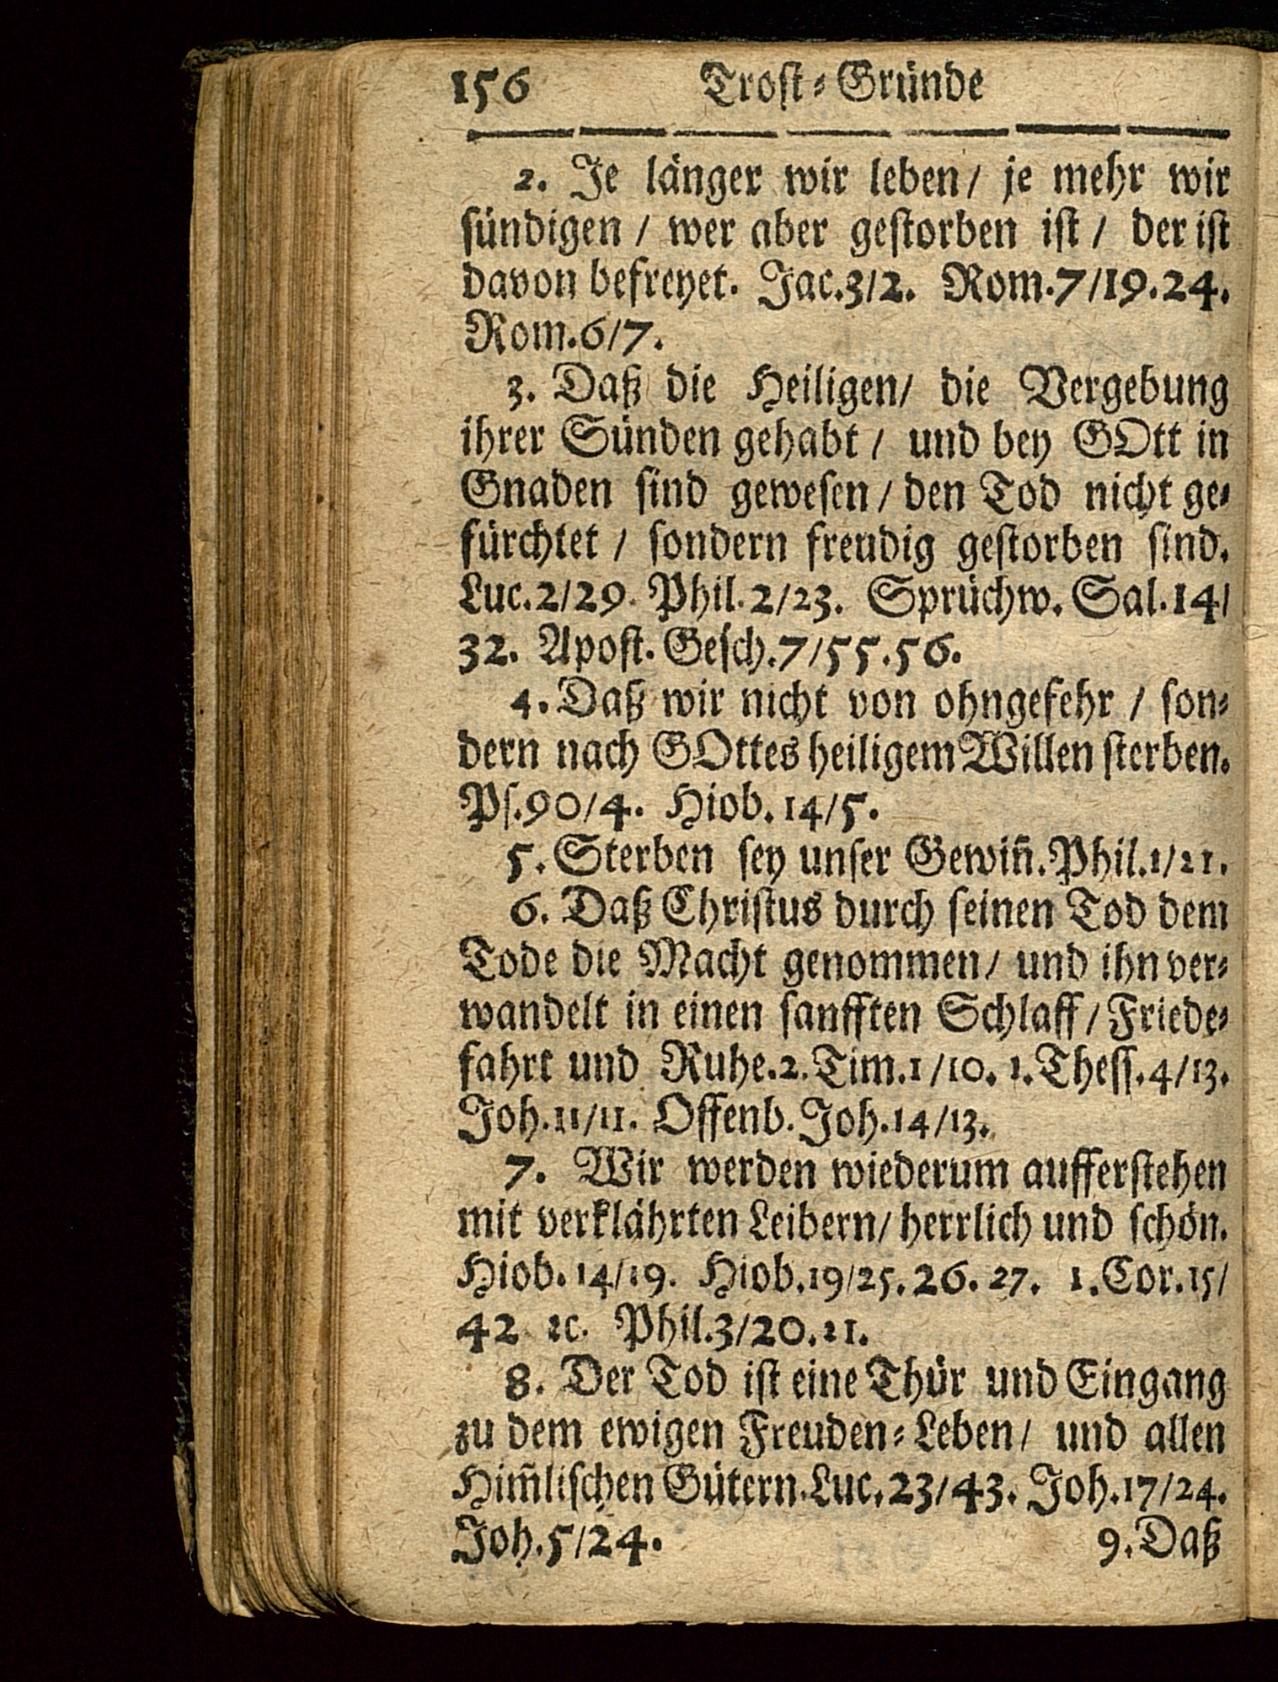 156 Trost-Gründe
2. Je länger wir leben/ je mehr wir
sündigen / wer aber gestorben ist / der ist
davon befreyet. Jac.3/2. Rom.7/19.24.
Rom.6/7.
3. Daß die Heiligen/ die Vergebung
ihrer Sünden gehabt / und bey GOtt in
Gnaden sind gewesen / den Tod nicht ge-
fürchtet / sondern freudig gestorben sind.
Luc.2/29. Phil.2/23. Sprüchw. Sal.14/
32. Apost. Gesch.7/55.56.
4. Daß wir nicht von ohngefehr / son-
dern nach GOttes heiligem Willen sterben.
Ps.90/4. Hiob.14/5.
5. Sterben sey unser Gewiñ. Phil.1/21.
6. Daß Christus durch seinen Tod dem
Tode die Macht genommen/ und ihn ver-
wandelt in einen sanfften Schlaff / Friede-
fahrt und Ruhe.2.Tim.1/10. 1.Thess.4/13.
Joh.11/11. Offenb. Joh.14/13.
7. Wir werden wiederum aufferstehen
mit verklährten Leibern/ herrlich und schön.
Hiob.14/19. Hiob.19/25.26.27. 1.Cor.15/
42 ꝛc. Phil.3/20.21.
8. Der Tod ist eine Thür und Eingang
zu dem ewigen Freuden-Leben/ und allen
Him̃lischen Gütern. Luc.23/43. Joh.17/24.
Joh.5/24. 9. Daß